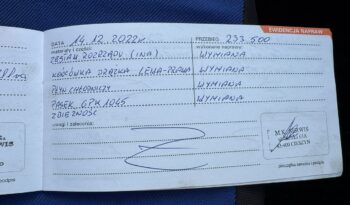 EWIDENCJA NAPRAW
DATA 14.12.2022r PRZEBIEG 233.500
materiały i części: wykonane naprawy:
ZESTAW ROZRZĄDU (INA) WYMIANA
KOŃCÓWKA DRĄŻKA LEWA-PRAWA WYMIANA
PŁYN CHŁODNICZY WYMIANA
PASEK 6PK1045 WYMIANA
ZBIEŻNOŚĆ
uwagi i zalecenia:
43-400 CIESZYN
pieczątka zakładu i podpis